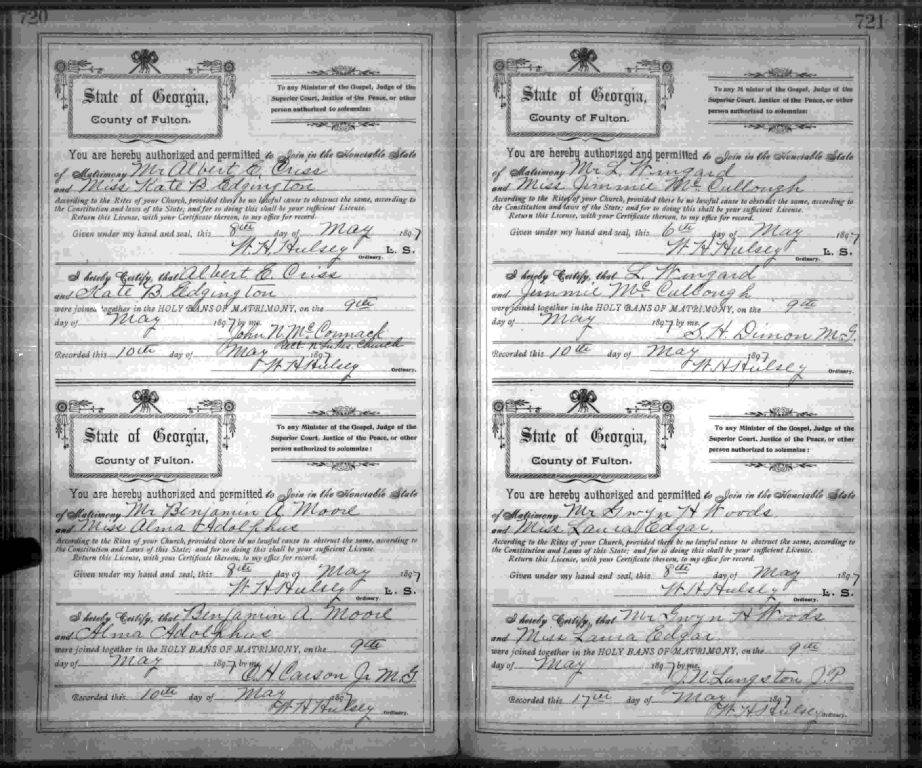 720
State of Georgia,
County of Fulton.
To any Minister of the Gospel, Judge of the
Superior Court, Justice of the Peace, or other
person authorized to solemnize:
You are hereby authorized and permitted to Join in the Honorable State
of Matrimony Mr Albert E. Criss
and Miss Kate B. Edgington
According to the Rites of your Church, provided there be no lawful cause to obstruct the same, according to
the Constitution and laws of the State; and for so doing this shall be your sufficient License.
Return this License, with your Certificate thereon, to my office for record.
Given under my hand and seal, this 8th day of May 1897
W. H. Hulsey L. S.
Ordinary.
I hereby Certify, that Albert E. Criss
and Kate B. Edgington
were joined together in the HOLY BANS OF MATRIMONY, on the 9th
day of May 1897 by me.
John N. McCormack
Rect. St Lukes Church
Recorded this 10th day of May 1897
W. H. Hulsey
Ordinary.
State of Georgia,
County of Fulton.
To any Minister of the Gospel, Judge of the
Superior Court, Justice of the Peace, or other
person authorized to solemnize:
You are hereby authorized and permitted to Join in the Honorable State
of Matrimony Mr Benjamin A. Moore
and Miss Alma Adolphus
According to the Rites of your Church, provided there be no lawful cause to obstruct the same, according to the
Constitution and Laws of this State; and for so doing this shall be your sufficient License.
Return this License, with your Certificate thereon, to my office for record.
Given under my hand and seal, this 8th day of May 1897
W. H. Hulsey L. S.
Ordinary.
I hereby Certify, that Benjamin A. Moore
and Alma Adolphus
were joined together in the HOLY BANS OF MATRIMONY, on the 9th
day of May 1897 by me
C. H. Carson Jr M.G
Recorded this 10th day of May 1897
W. H. Hulsey
Ordinary.
721
State of Georgia,
County of Fulton.
To any Minister of the Gospel, Judge of the
Superior Court, Justice of the Peace, or other
person authorized to solemnize:
You are hereby authorized and permitted to Join in the Honorable State
of Matrimony Mr L. Wingard
and Miss Jimmie McCullough
According to the Rites of your Church, provided there be no lawful cause to obstruct the same, according to the
Constitution and laws of the State; and for so doing this shall be your sufficient License.
Return this License, with your Certificate thereon, to my office for record.
Given under my hand and seal, this 6th day of May 1897
W. H. Hulsey L. S.
Ordinary.
I hereby Certify, that L. Wingard
and Jimmie McCullough
were joined together in the HOLY BANS OF MATRIMONY, on the 9th
day of May 1897 by me.
S. H. Dimon M.G.
Recorded this 10th day of May 1897
W. H. Hulsey
Ordinary.
State of Georgia,
County of Fulton.
To any Minister of the Gospel, Judge of the
Superior Court, Justice of the Peace, or other
person authorized to solemnize:
You are hereby authorized and permitted to Join in the Honorable State
of Matrimony Mr Gwyn H Woods
and Miss Laura Edgar
According to the Rites of your Church, provided there be no lawful cause to obstruct the same, according to
the Constitution and Laws of this State; and for so doing this shall be your sufficient License.
Return this License, with your Certificate thereon, to my office for record.
Given under my hand and seal, this 8th day of May 1897
W. H. Hulsey L. S.
Ordinary.
I hereby Certify, that Mr Gwyn H Woods
and Miss Laura Edgar
were joined together in the HOLY BANS OF MATRIMONY, on the 9th
day of May 1897 by me.
Langston J.P
Recorded this 17th day of May 1897
W H Hulsey
Ordinary.